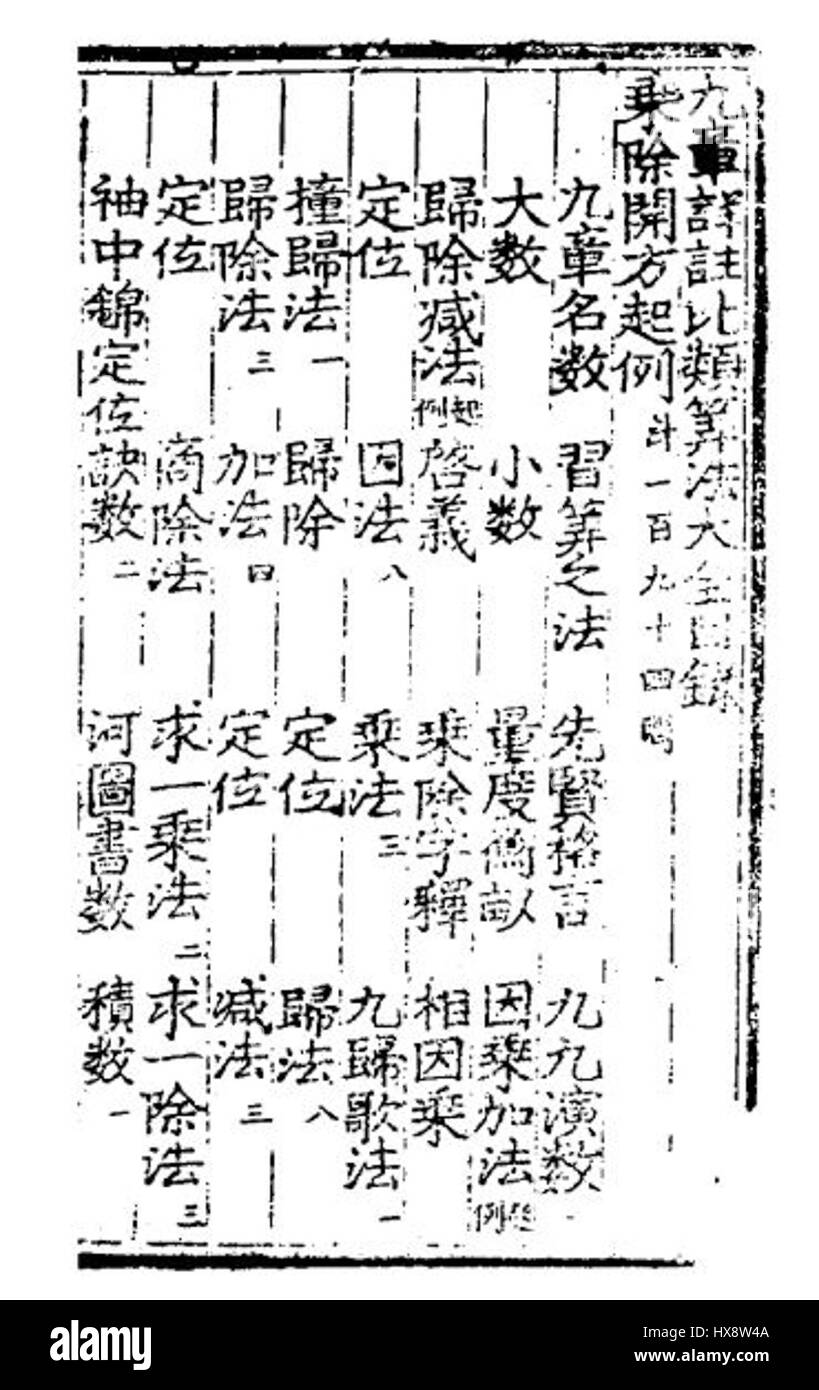 九章詳註比類算法大全目錄
乘除開方起例 計一百九十四問
九章名數 習算之法 先賢格言 九九演數
大數 小數 量度衡畝 因乘加法起例
歸除減法起例 啓義 乘除字釋 相因乘
定位 因法八 乘法三 九歸歌法一
撞歸法一 歸除 定位 歸法八
歸除法三 加法四 定位 減法三
定位 商除法 求一乘法二 求一除法三
袖中錦定位訣數二 河圖書數 積數一
alamy
Image ID: HX8W4A
www.alamy.com